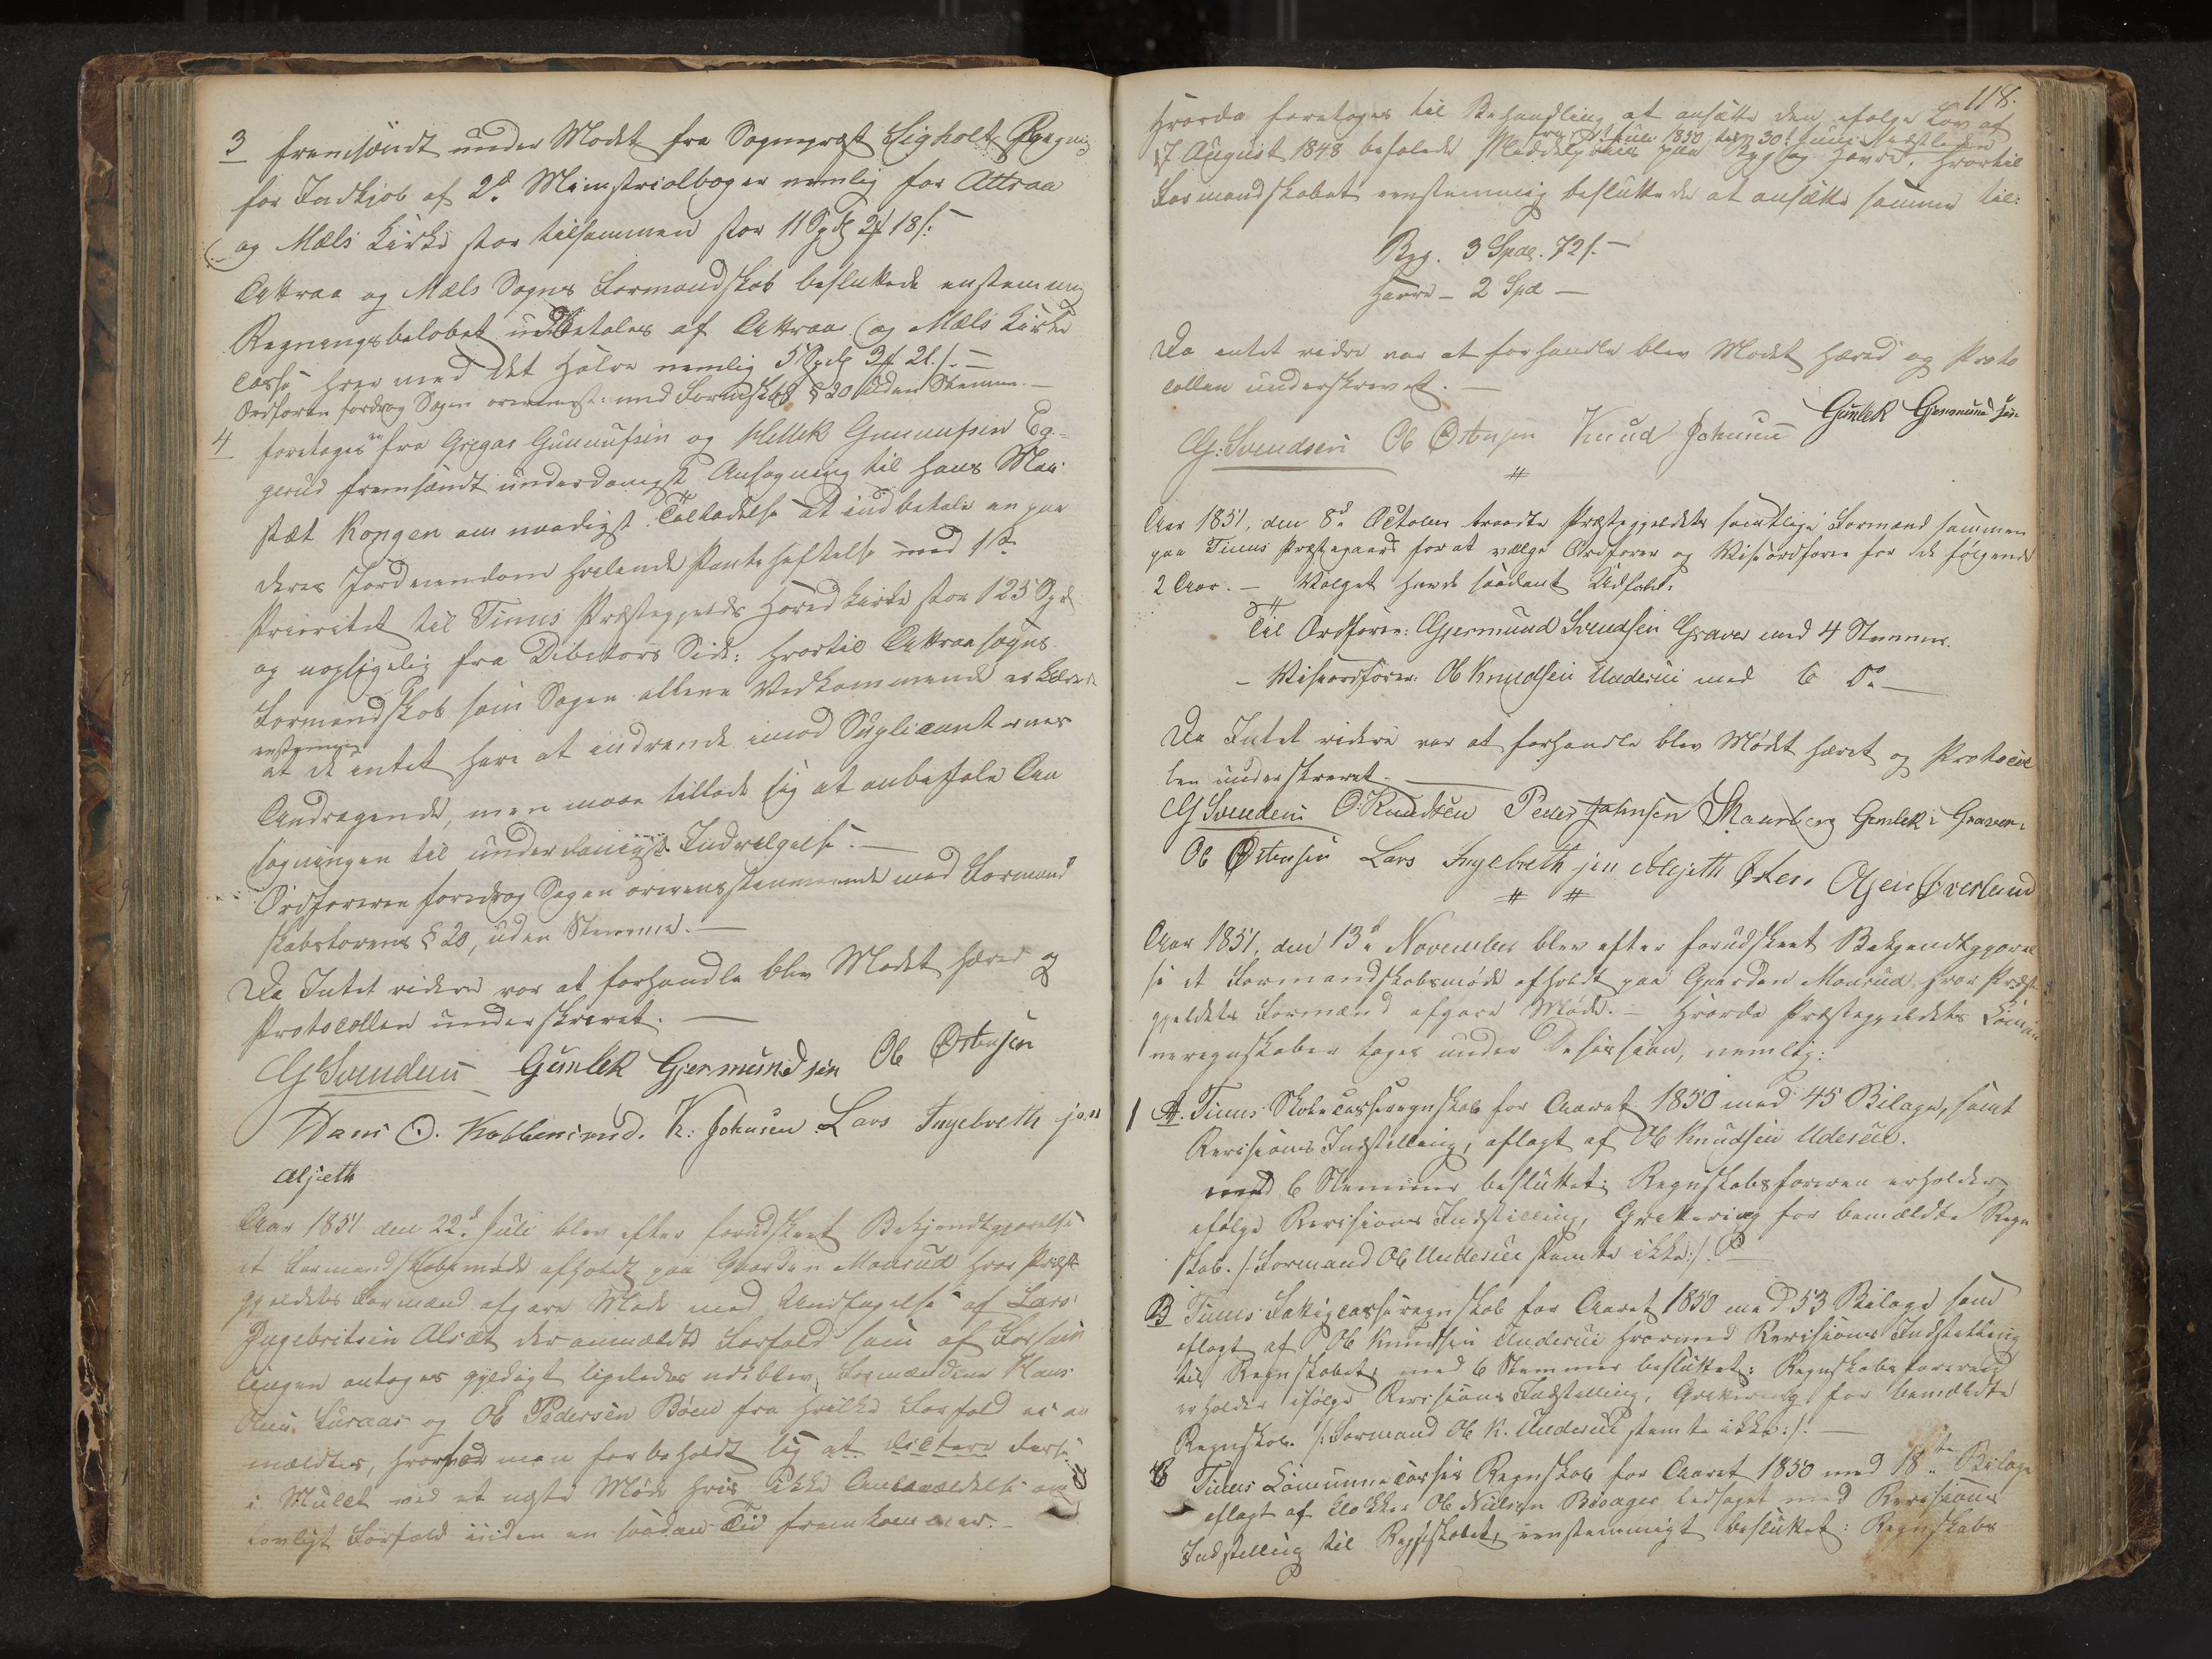 3 fremsendt under Mødet fra Sogneprest Sigholt Regning
for Indkjøb af 2de Ministrialbøger nemlig for Attraa
og Mæls Kirke stor tilsammen stor 11 Spd 2 18 s:
Attraa og Mæls Sogns Formandskab besluttede enstemmig
Regningsbeløbet udbetales af Attraa og Mæls Kirke
casse hver med det Halve nemlig 5 Spd 3 21 s. —
Ordføren fordrog Sagen overenst: med Formskbl § 20 uden Stemme. —
4 foretoges en fra Gregar Gunnufsen og Hellek Gunnufsen
gerud fremsendt underdanigst Ansøgning til Hans Maj:
stæt Kongen om naadigst Tilladelse at indbetale en paa
deres Jordeiendom hvilende Pantehæftelse med 1ste
Prioritet til Tinns Præstegjelds Hoved Kirke stor 125 Spd
og uopsigelig fra Debitors Side: hvortil Attraa Sogns
Formandskab som Sagen allene Vedkommende erklærede
enstemmig
at de intet have at indvende imod Suplicanternes
Andragende, men maae tillade sig at anbefale An
søgningen til underdanigst Indvilgelse. —
Ordføreren foredrog Sagen overensstemmende med Formand
skabslovens § 20, uden Stemme. —
Da Intet videre var at forhandle blev Mødet hævet og
Protocollen underskrevet. —
G Svendsen Gunlek Gjermundsen Ole Østensen
Hans O. K. Johnsen Lars Ingebreth sen
Alsjeth
Aar 1851 den 22de Juli blev efter forudskeet Bekjendtgjørelse
et Formandskabsmøde afholdt paa Gaarden Maarud hvor Præste
gjeldets Formænd afgave Møde med Undtagelse af Lars
Ingebritsen Alsæt der anmældte Forfald som af Forsam
lingen antoges gyldigt ligeledes udeblev Formændene Hans
Luraas og Ole Pedersen Bøen fra hvilke Forfald ei an
mældtes, hvorfor man forbeholdt sig at dictere disse
i Mulct ved et næste Møde hvis ikke Anmældelse om
lovligt Forfald inden en saadan Tid fremkommer. —
118.
Hvorda foretoges til Behandling at ansætte den ifølge Lov af
fra 1 Juli 1850 til 30 Juni sidstleden
17 August 1848 befalede Middelpriis paa Byg og Havre, hvortil
Formandskabet eenstemmig besluttede at ansætte samme til:
Byg. 3 Spd. 72 s. —
Havre — 2 Spd —
Da intet vidre var at forhandle blev Mødet hæved og Proto
collen underskrevet. —
G: Svendsen Ole Østensen Knud Johnsen Gunlek Gjermundsen
#
Aar 1851, den 8de October traadte Præstegjeldets samtlige Formænd sammen
paa Tinns Præstegaard for at vælge Ordfører og Viseordfører for de følgende
2 Aar. — Valget havde saadant Udfald:
Til Ordfører: Gjermund Svendsen Graver med 4 Stemmer.
— Viseordfører: Ole Knudsen Underui med 6 Do —
Da Intet videre var at forhandle blev Mødet hævet og Protocol
len underskrevet. —
G Svendsen O. Knudsen Peder Johnsen Gunlek Graver
Ole Østensen Lars Ingebreth sen Alsjeth Østen Olsen Øverland
# #
Aar 1851, den 13de November blev efter forudskeet Bekjendtgjørel
se et Formandskabsmøde afholdt paa Gaarden Maarud, hvor Præste
gjeldets Formænd afgave Møde. — Hvorda Præstegjeldets Commu
neregnskaber toges under Desission, nemlig:
1 A. Tinns Skolecasseregnskab for Aaret 1850 med 45 Bilage, samt
Revisions Indstilling, aflagt af Ole Knudsen Uderui.
med 6 Stemmer besluttet: Regnskabsføreren erholder
ifølge Revisions Indstilling, Qvittering for bemældte Regn
skab. /: Formand Ole Underui stemte ikke :/ —
B Tinns Fattigcasseregnskab for Aaret 1850 med 53 Bilage som
aflagt af Ole Knudsen Underui hvormed Revisions Indstilling
til Regnskabet, med 6 Stemmer besluttet: Regnskabsføreren
erholder ifølge Revisions Indstilling, Qvittering for bemældte
Regnskab. /: Formand Ole K. Underui stemte ikke :/ —
C Tinns Communecasses Regnskab for Aaret 1850 med 18 Bilage
aflagt af Klokker Ole Nielsen ledsaget med Revisions
Indstilling til Regnskabet, eenstemmigt besluttet: Regnskabs